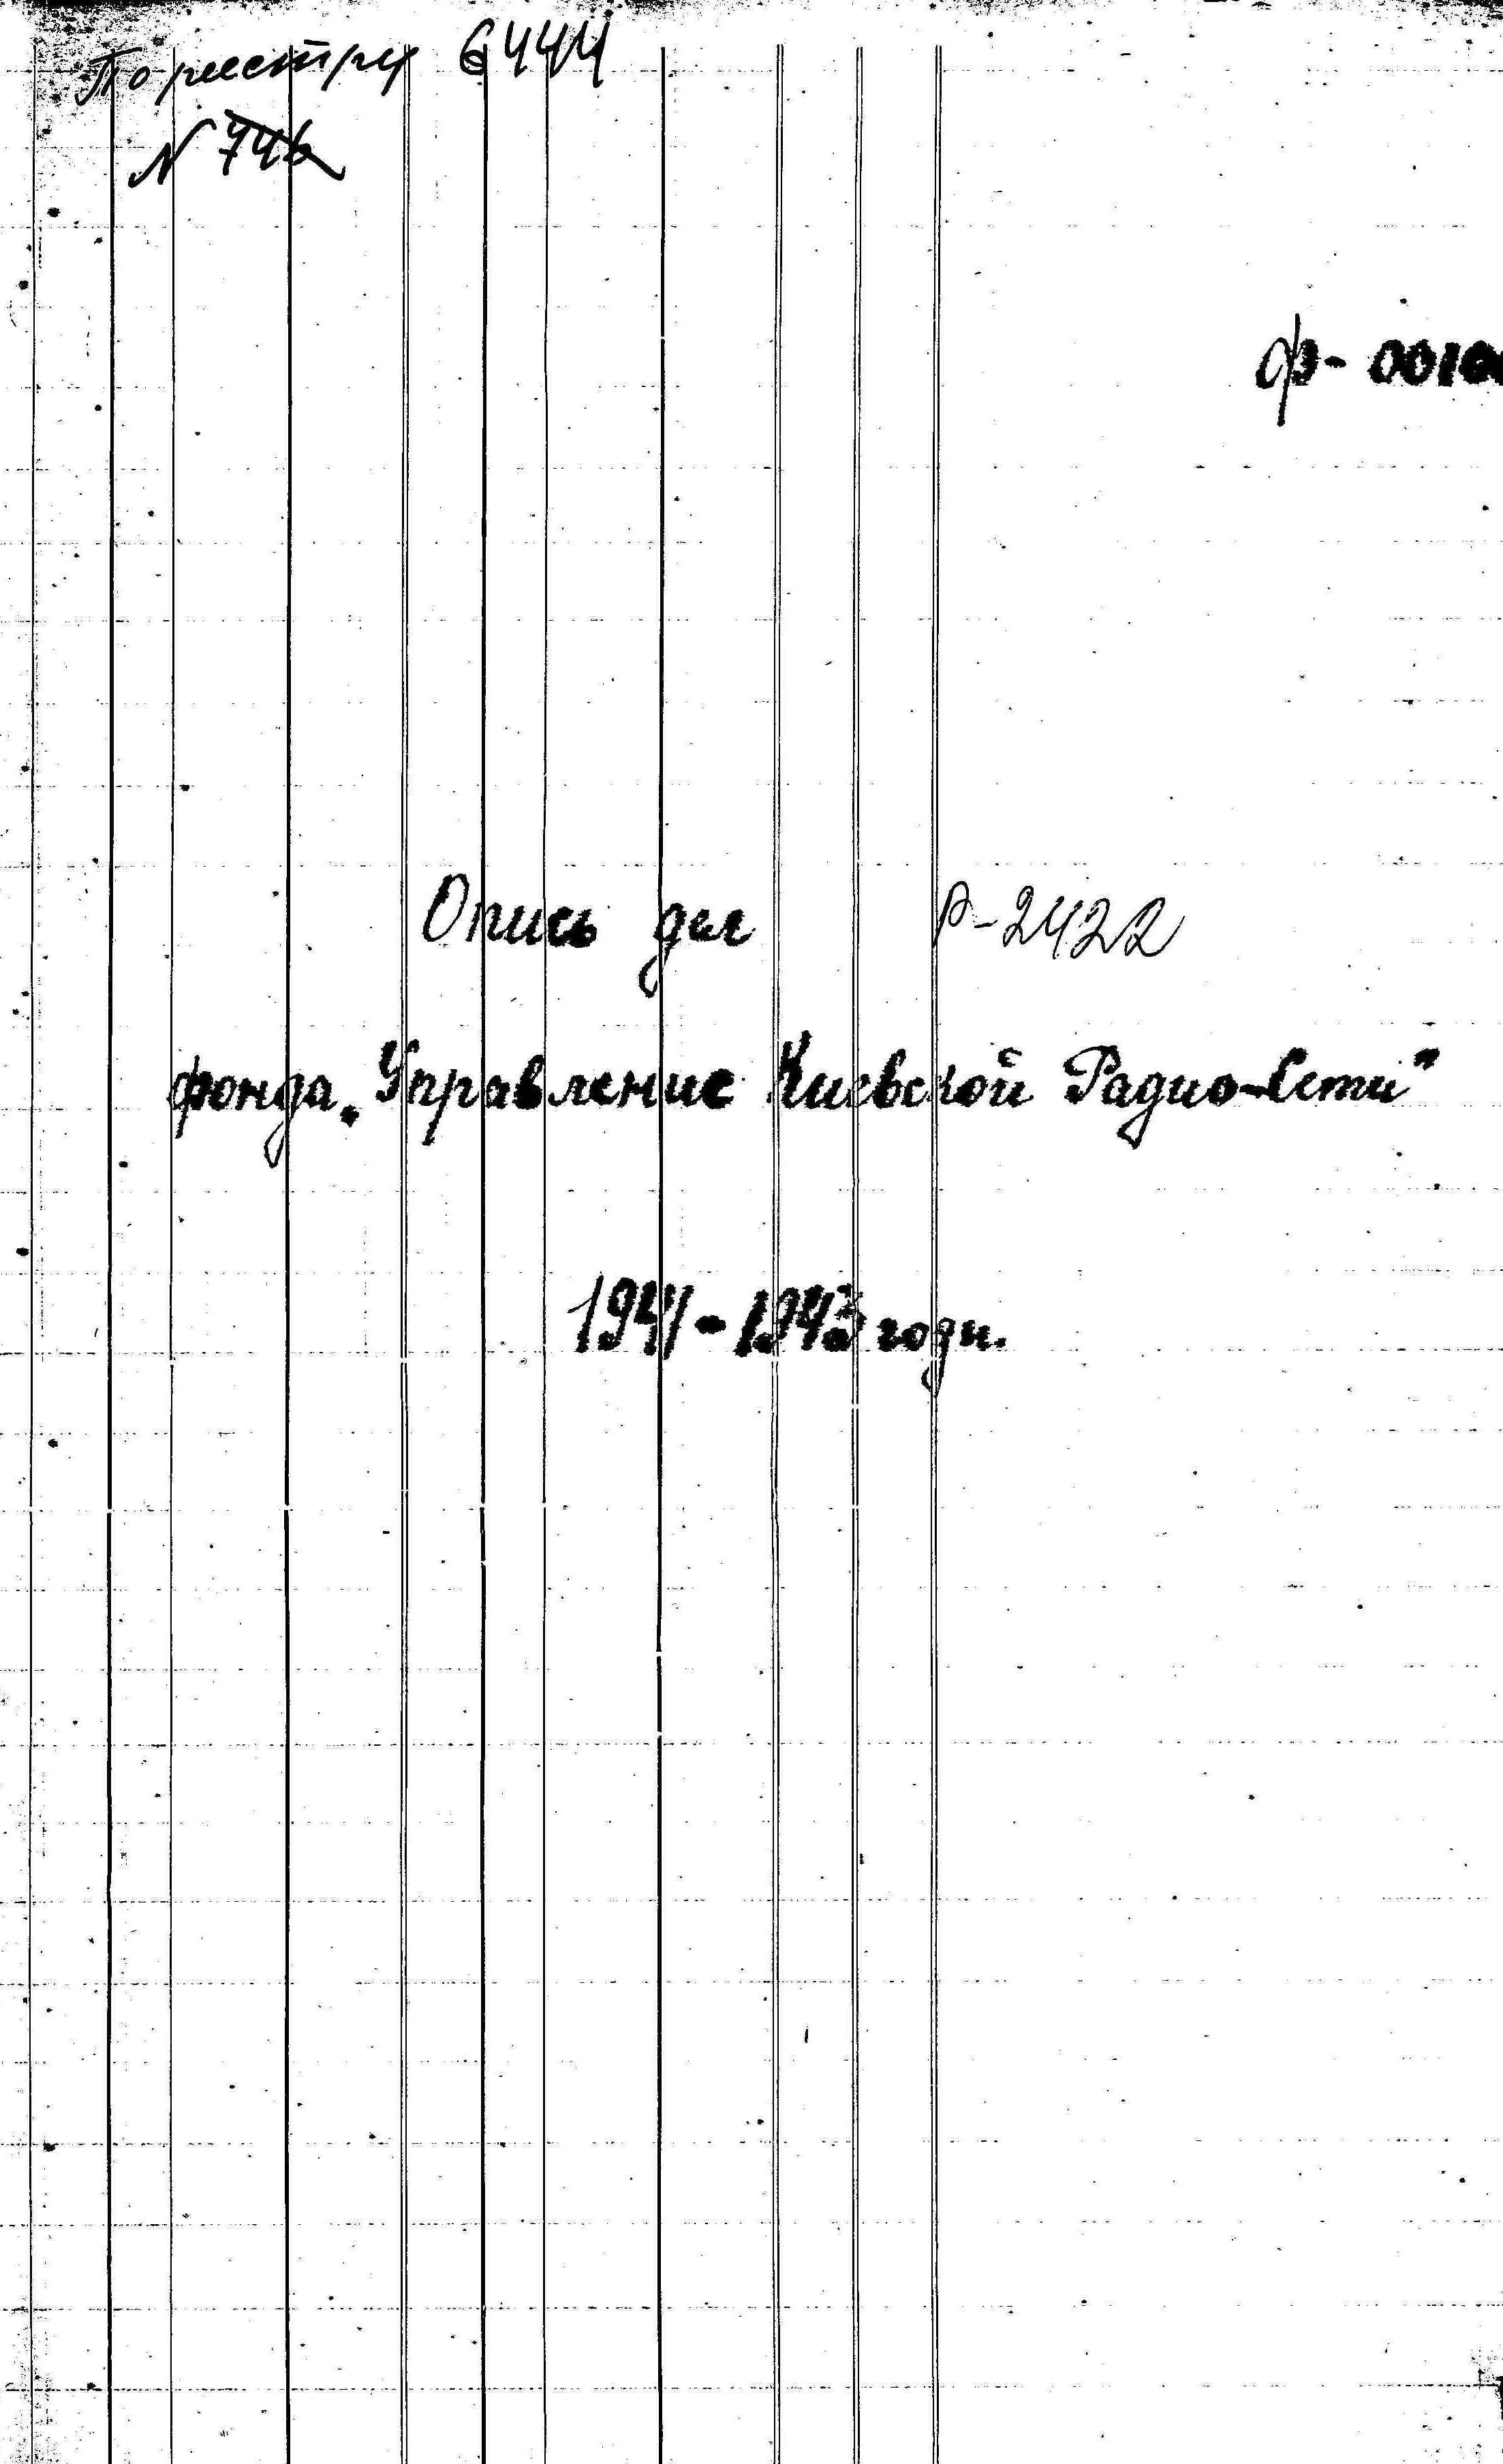 По реестру 6444
N 746
ф- 00100
Опись дел Р-2422
фонда „Управление Киевской Радио-Сети"
1941-1943 годы.